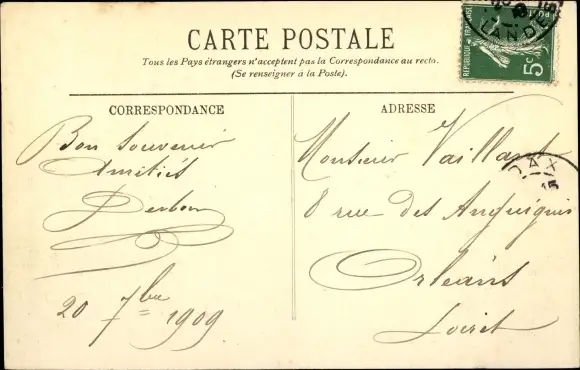 CARTE POSTALE
Tous les Pays étrangers n'acceptent pas la Correspondance au recto.
(Se renseigner à la Poste).
CORRESPONDANCE
Bon Souvenir
Amitiés
20 7bre 1909
ADRESSE
Monsieur Vaillant
8 rue des Anguignis
Orléans
Loiret
REPUBLIQUE FRANÇAISE
5c
LANDES
DAX
15